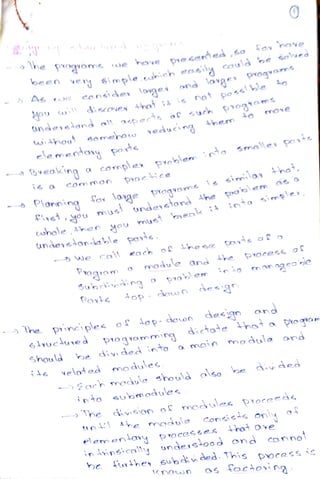 ①
→ The programs we have presented, so far have
been very simple which easily could be solved
→ As we consider larger and larger programs
you will discover that it is not possible to
understand all aspects of such programs
without somehow reducing them to more
elementary parts
→ Breaking a complex problem into smaller parts
is a common practice
→ Planning for large programs is similar that,
first, you must understand the problem as a
whole, then you must break it into simpler,
understandable parts.
→ We call each of these parts of a
Program a module and the process of
subdividing a problem into manageable
Parts top-down design.
→ The principles of top-down design and
structured programming dictate that a program
should be divided into a main module and
its related modules.
→ Each module should also be divided
into submodules
→ The division of modules proceeds
until the module consists only of
elementary processes that are
intrinsically understood and cannot
be further subdivided. This process is
known as factoring.